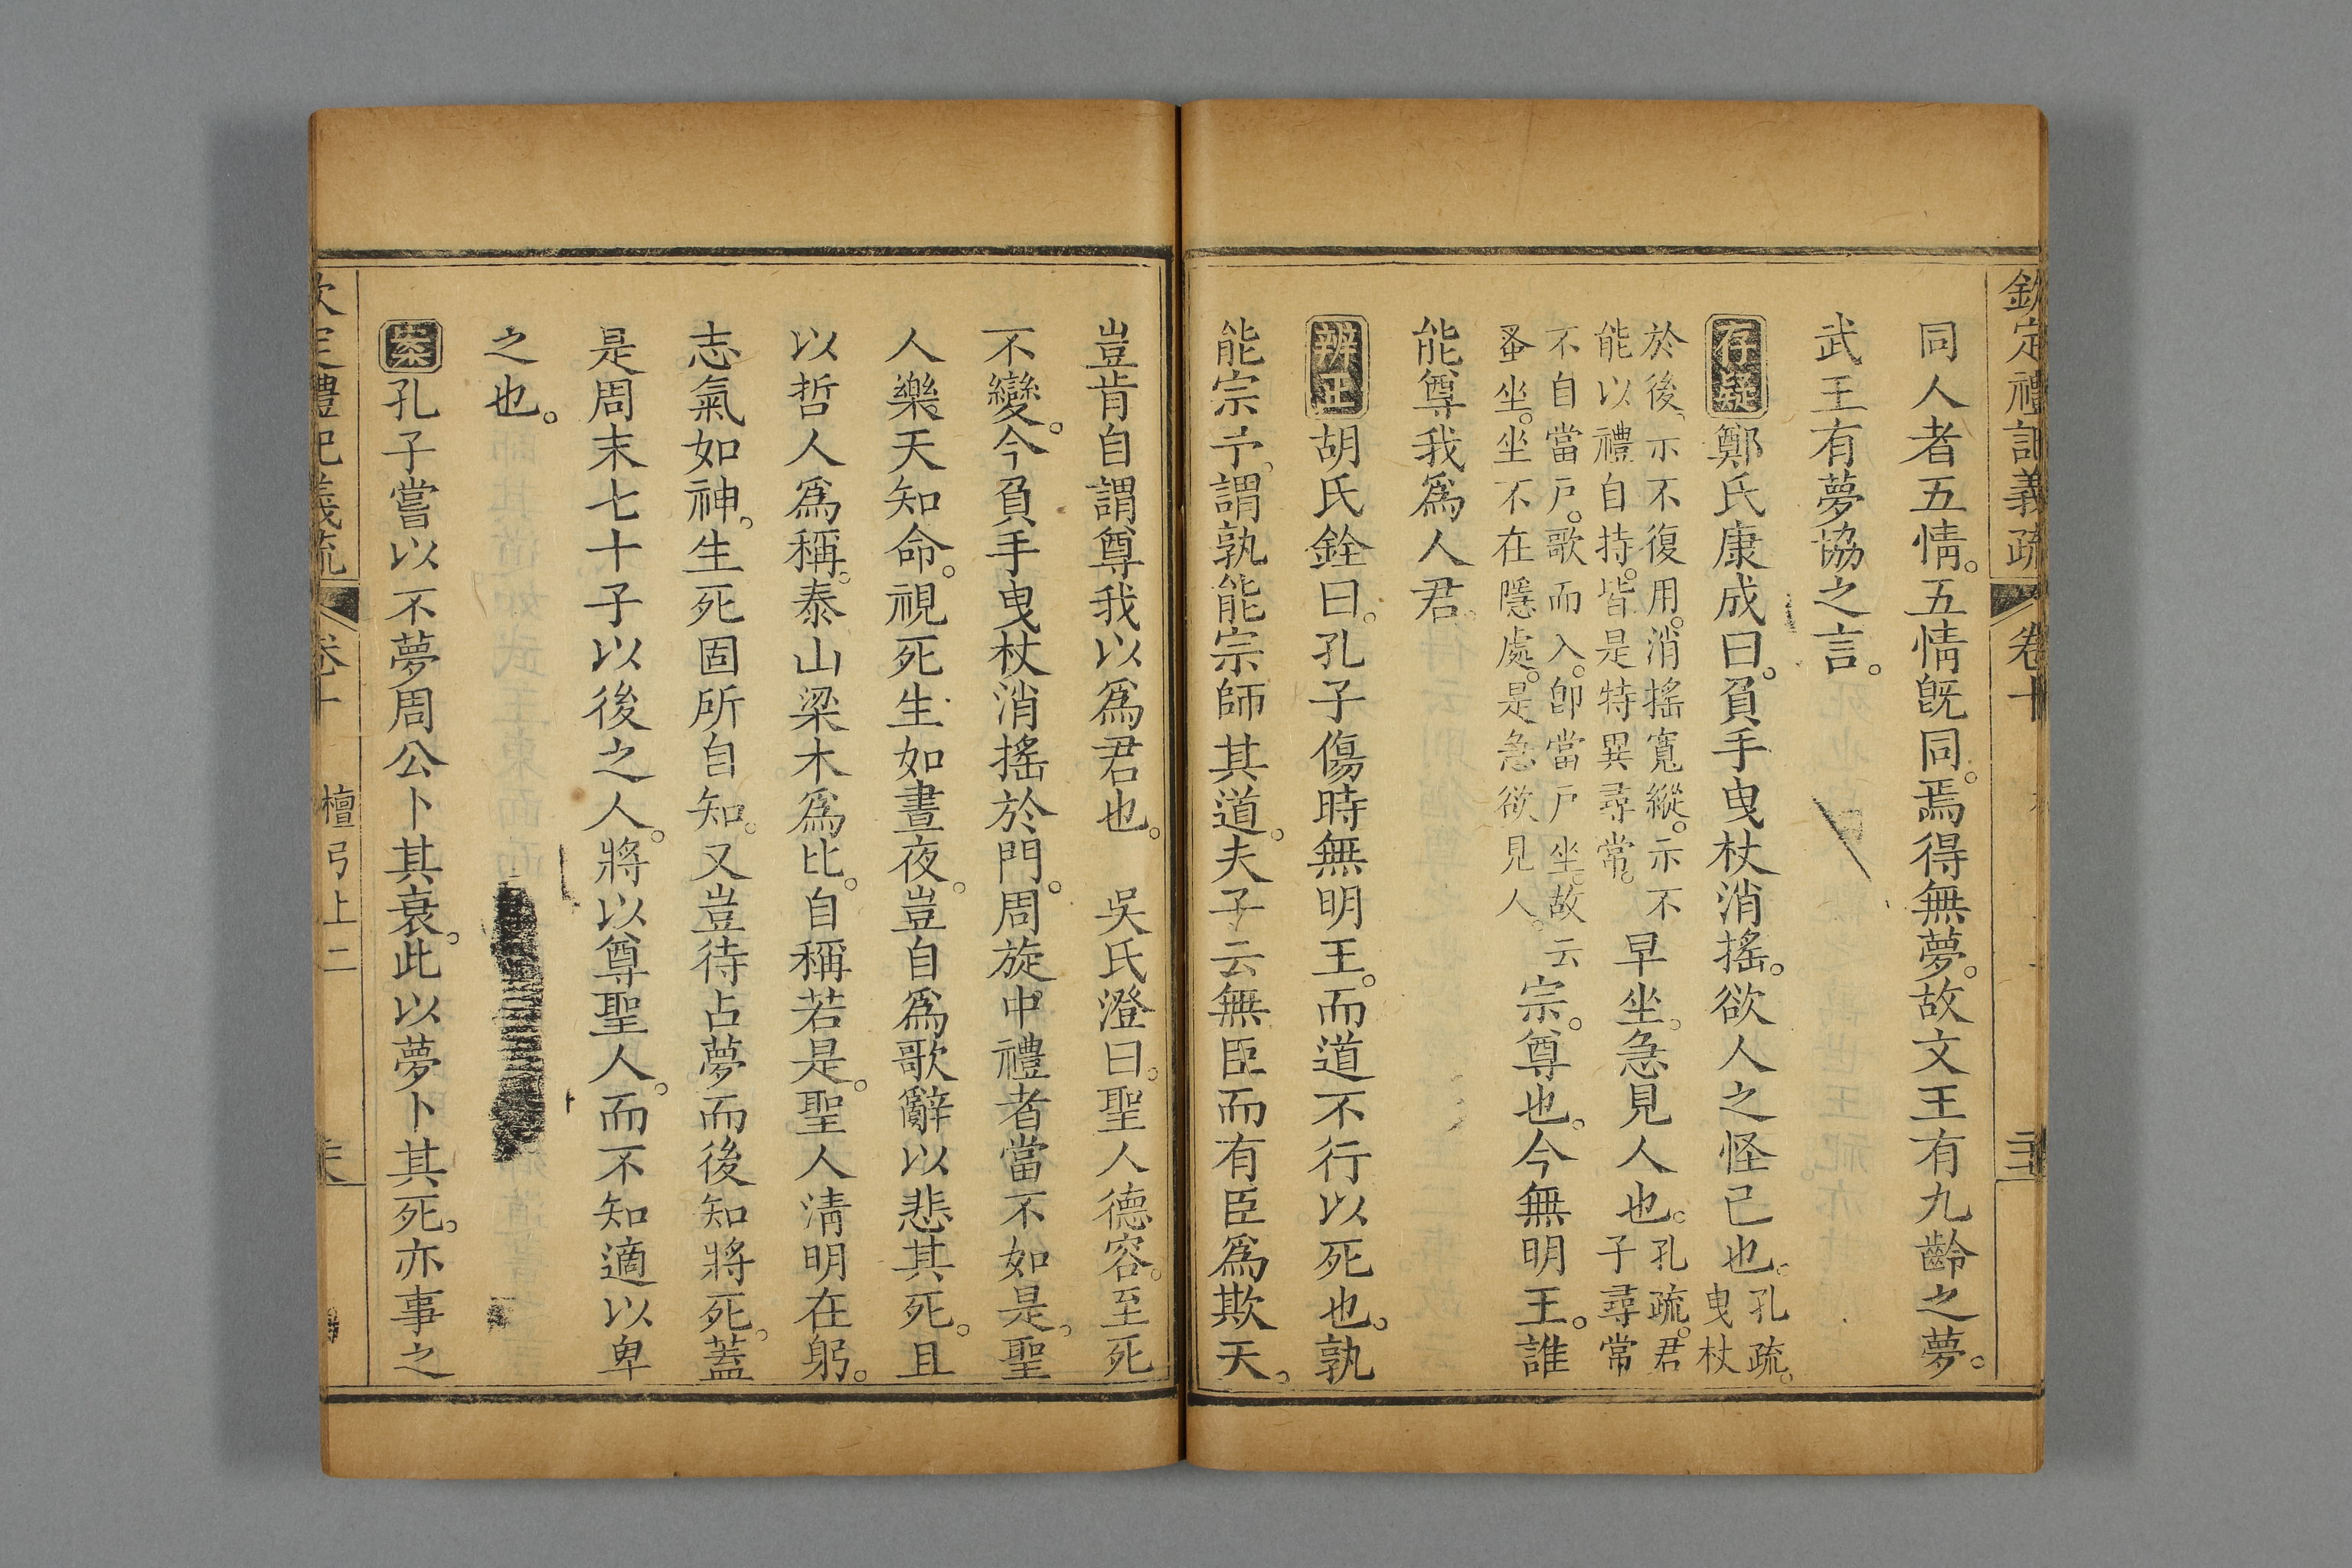 欽定禮記義疏 卷十
同人者五情。五情既同。焉得無夢。故文王有九齡之夢。
武王有夢協之言。
存疑 鄭氏康成曰。負手曳杖消搖。欲人之怪己也。孔疏。曳杖
於後、示不復用。消搖寬縱。示不能以禮自持。皆是特異尋常。早坐。急見人也。孔疏。君子尋常
不自當戶。歌而入。卽當戶坐。故云蚤坐。坐不在隱處。是急欲見人。宗。尊也。今無明王。誰
能尊我爲人君。
辨正 胡氏銓曰。孔子傷時無明王。而道不行以死也。孰
能宗予、謂孰能宗師其道。夫子云無臣而有臣爲欺天。
豈肯自謂尊我以爲君也。 吳氏澄曰。聖人德容。至死
不變。今負手曳杖消搖於門。周旋中禮者當不如是。聖
人樂天知命。視死生如晝夜。豈自爲歌辭以悲其死。且
以哲人爲稱。泰山梁木爲比。自稱若是。聖人淸明在躬。
志氣如神。生死固所自知。又豈待占夢而後知將死。蓋
是周末七十子以後之人。將以尊聖人。而不知適以卑
之也。
案 孔子嘗以不夢周公卜其衰。此以夢卜其死。亦事之
欽定禮記義疏 卷十 檀弓上二